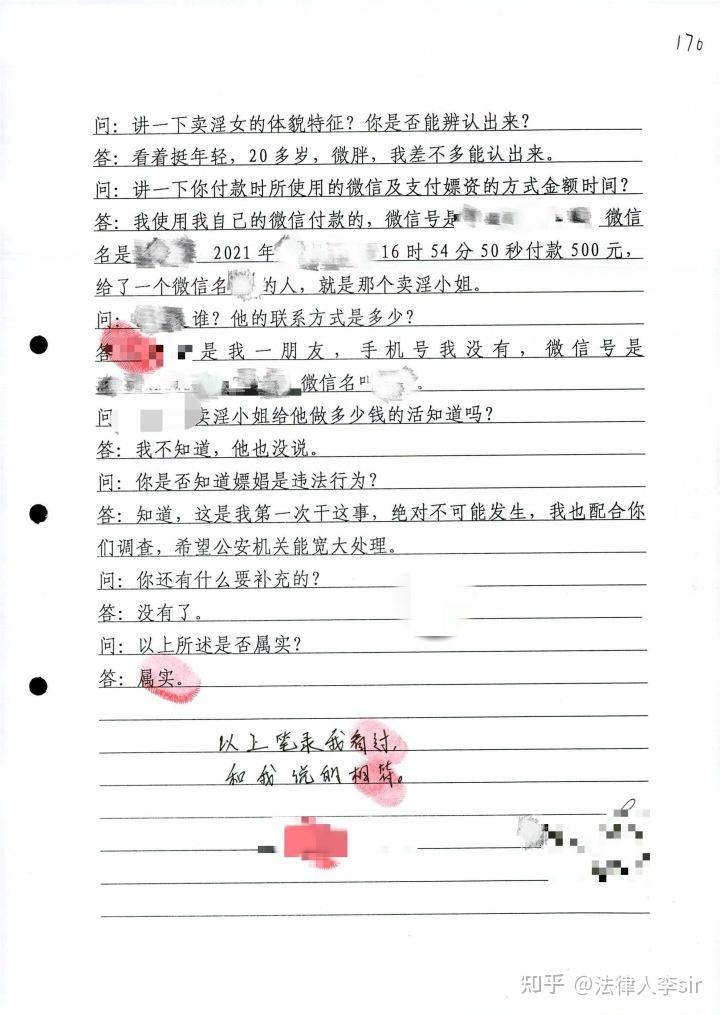 170
问：讲一下卖淫女的体貌特征？你是否能辨认出来？
答：看着挺年轻，20多岁，微胖，我差不多能认出来。
问：讲一下你付款时所使用的微信及支付嫖资的方式金额时间？
答：我使用我自己的微信付款的，微信号是 微信
名是 2021年 16时54分50秒付款500元，
给了一个微信名 的人，就是那个卖淫小姐。
问： 谁？他的联系方式是多少？
答 是我一朋友，手机号我没有，微信号是
微信名叫 。
问 卖淫小姐给他做多少钱的活知道吗？
答：我不知道，他也没说。
问：你是否知道嫖娼是违法行为？
答：知道，这是我第一次干这事，绝对不可能发生，我也配合你
们调查，希望公安机关能宽大处理。
问：你还有什么要补充的？
答：没有了。
问：以上所述是否属实？
答：属实。
以上笔录我看过，
和我说的相符。
知乎 @法律人李sir